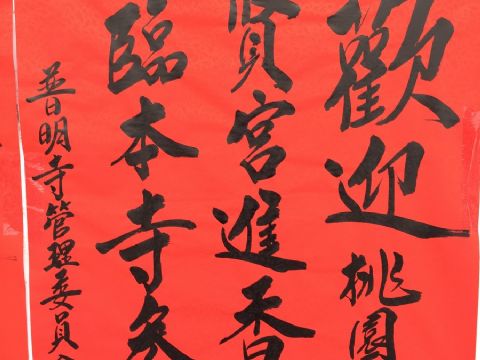 歡迎桃園
賢宮進香
臨本寺參
普明寺管理委員會